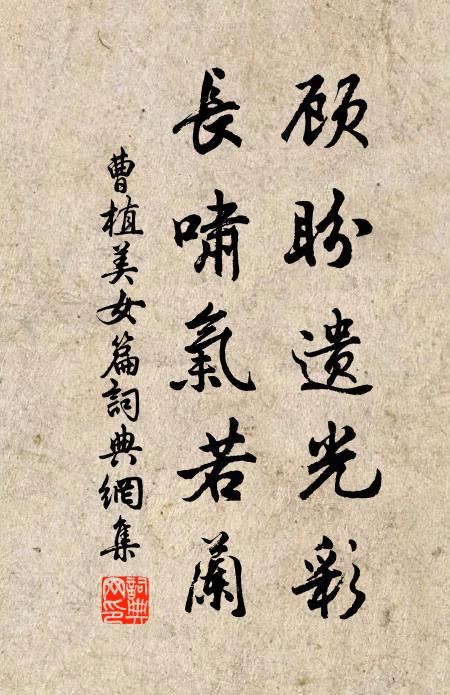 顾盼遗光彩
長嘯氣若蘭
曹植美女篇詞典網集
詞典網印